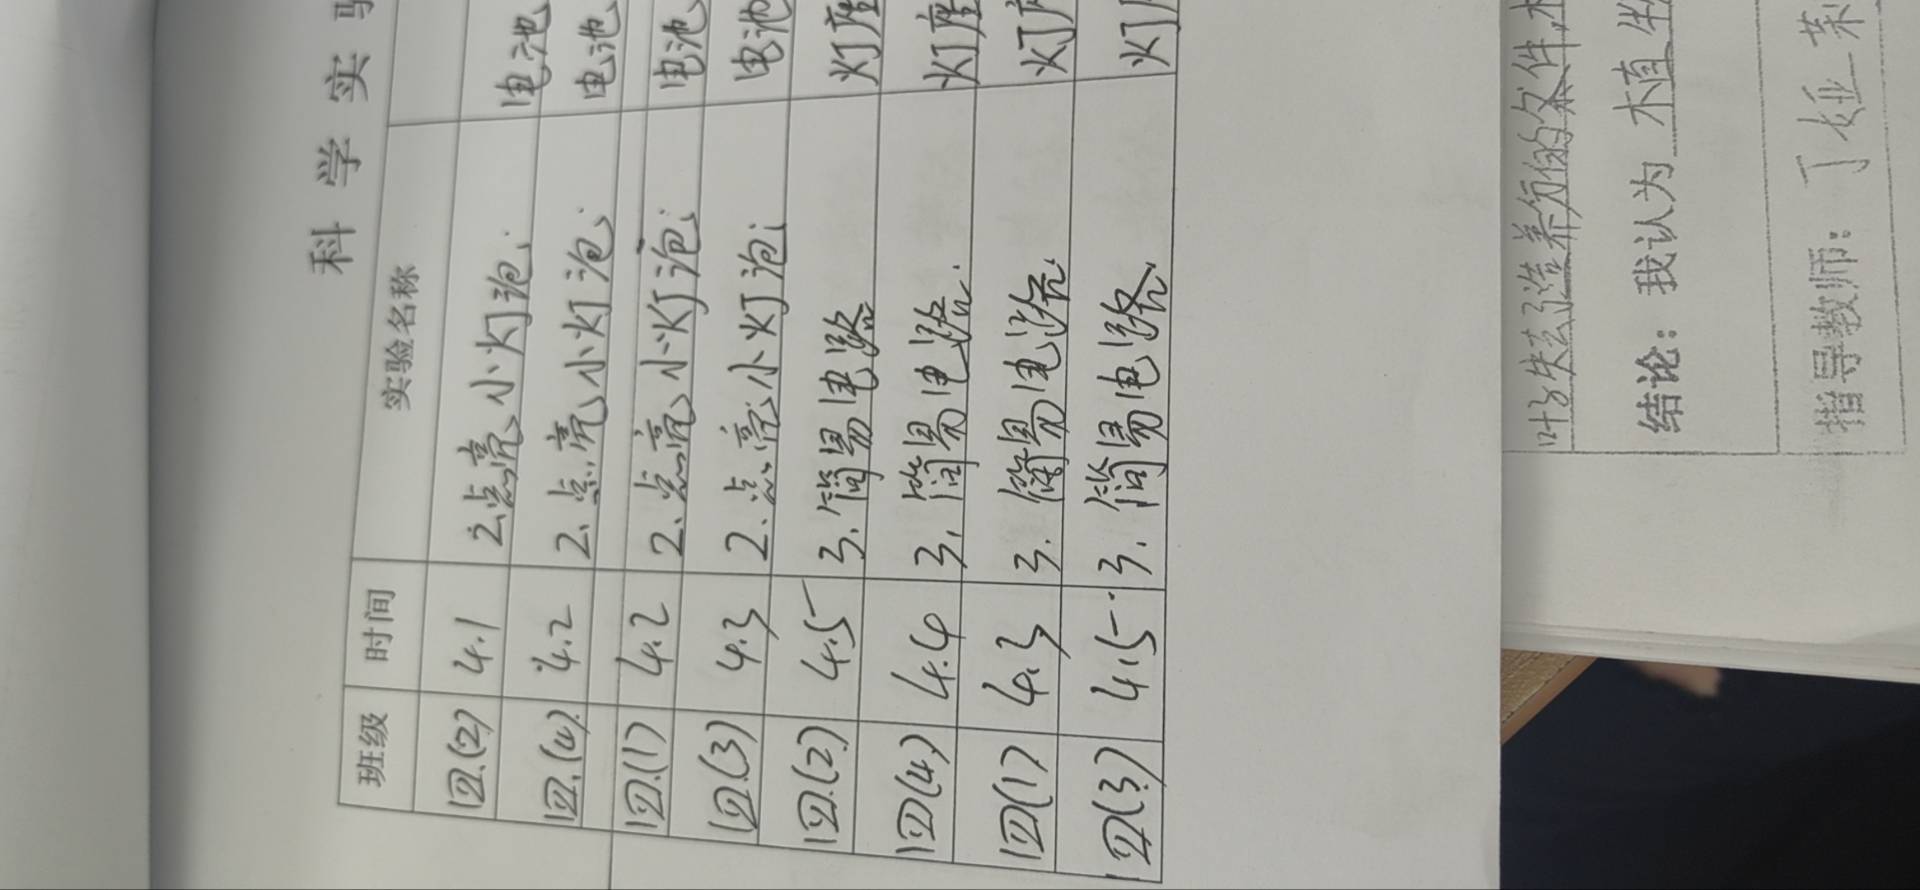 科 学 实 验
班级 时间 实验名称
四.(2) 4.1 2.点亮小灯泡. 电池
四.(4). 4.2 2.点亮小灯泡. 电池
四.(1) 4.2 2.点亮小灯泡. 电池
四.(3) 4.3 2.点亮小灯泡. 电池
四.(2) 4.5 3.简易电路 灯座
四(4) 4.4 3.简易电路. 灯座
四(1) 4.3 3.简易电路. 灯座
四(3) 4.5 3.简易电路. 灯
叶子失去了造养份的条件,
结论：我认为 木直
指导教师：丁